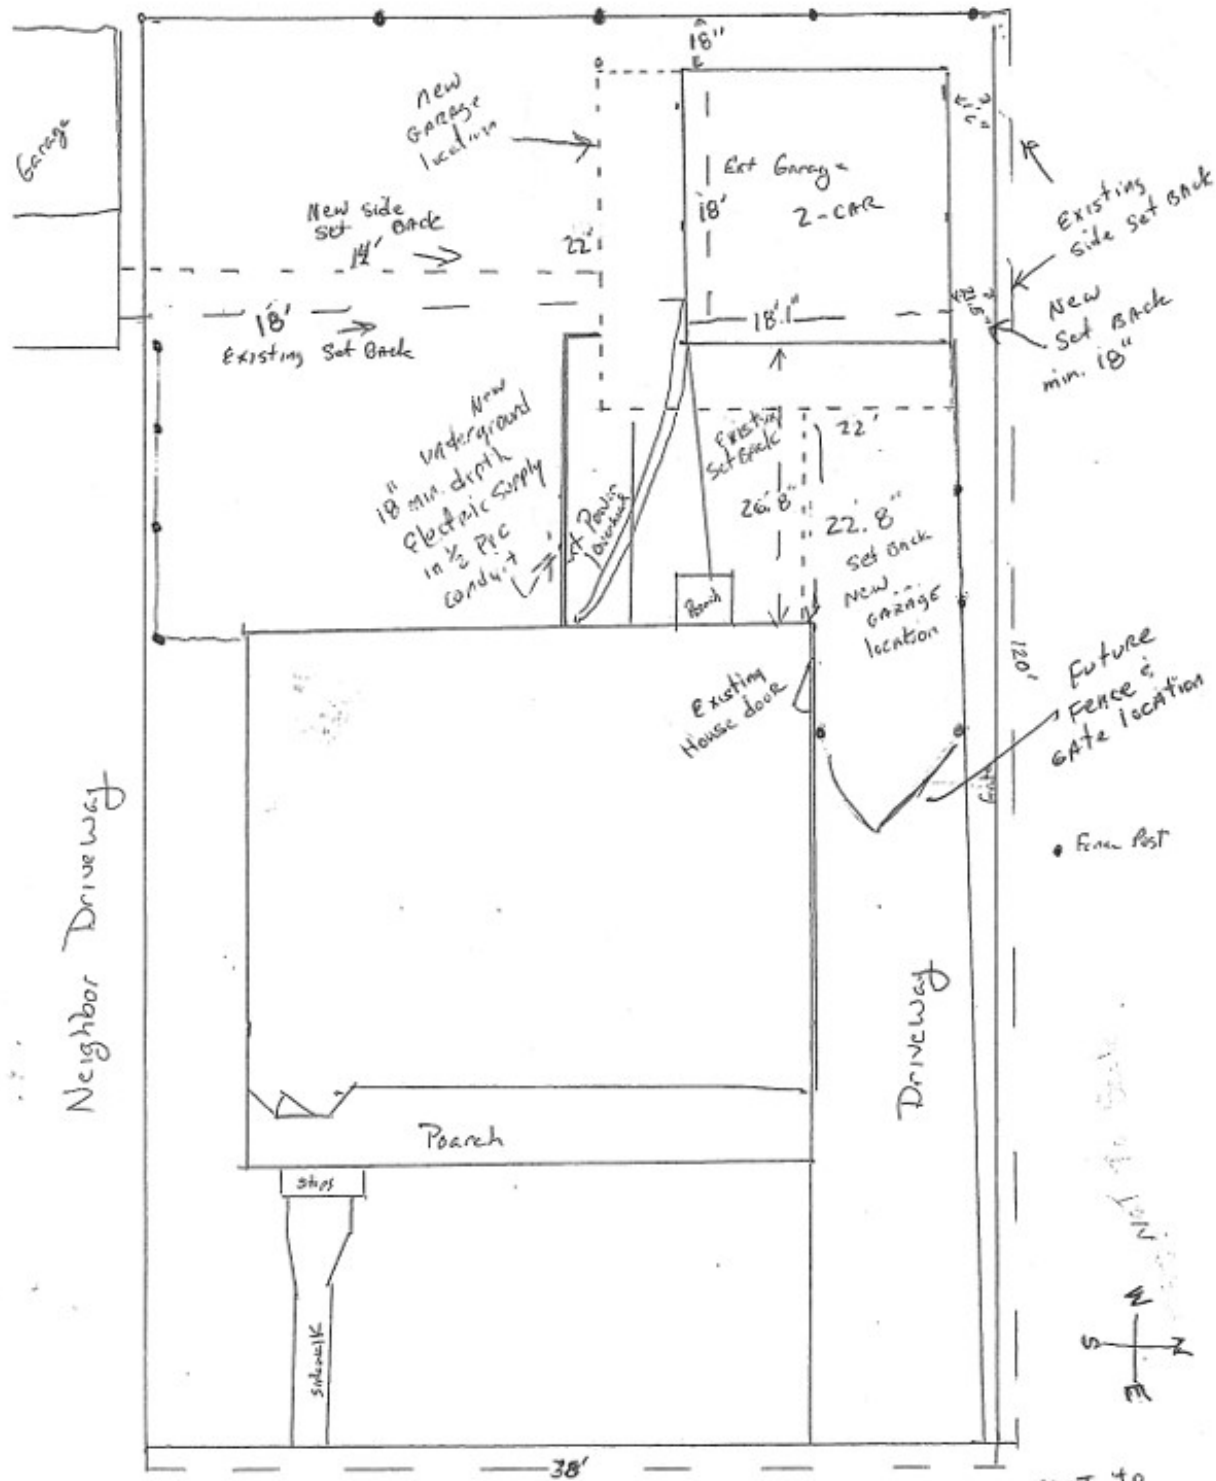 18"
new
GARAGE
location
Garage
Ext Garage
2-CAR
18'
New side
Set BACK
14'
22'
Existing
side Set BACK
18'
Existing Set Back
18'.1"
New
Set BACK
min. 18"
New
underground
18" min. depth
Electric Supply
in 1/2 PVC
conduit
Power
overhead
Existing
Set BACK
26'.8"
22'
22'.8"
Set Back
New
GARAGE
location
Poarch
120'
Existing
House door
Future
Fence &
GAte locAtion
Gate
Fence Post
Neighbor Driveway
Driveway
Poarch
Steps
Sidewalk
W
S
N
E
38'